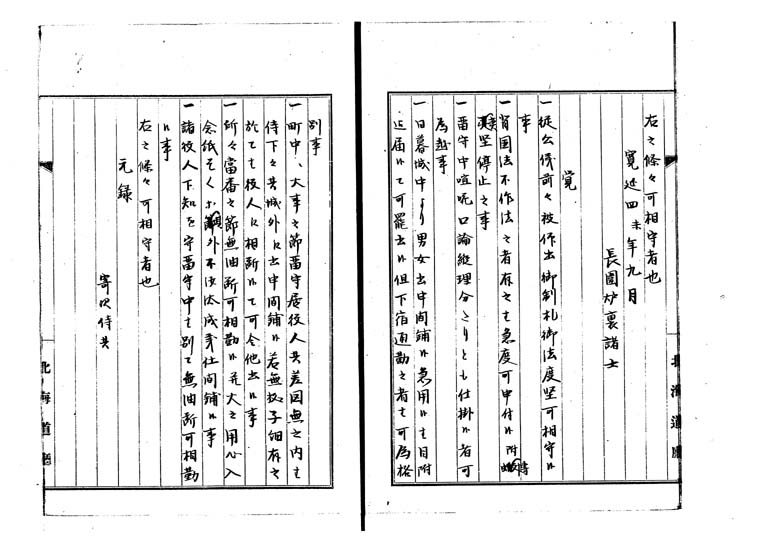 右之條々可相守者也
寛延四未年九月
長囲炉裏諸士
覚
一従公儀前々被仰出御制札御法度堅可相守候
事
一背国法不作法之者有之ハ急度可申付候附博
奕堅停止之事
一留守中喧嘩口論縦理分たりとも仕掛候者可
為越事
一日暮城中より男女出申間鋪候急用候ハ目附
江届候て可罷出候但下宿通勤之者ハ可為格
別事
一町中大事之節留守居役人共差図無之内ハ
侍下々共城外江出申間鋪候若無拠子細有之
於てハ役人江相断候て可令他出候事
一所々當番之節無油断可相勤候并火之用心入
念紙そく 外不沙汰成義仕間鋪候事
一諸役人下知を守留守中ハ別て無油断可相勤
候事
右之條々可相守者也
元録
寄次侍共
北海道廳
北海道廳